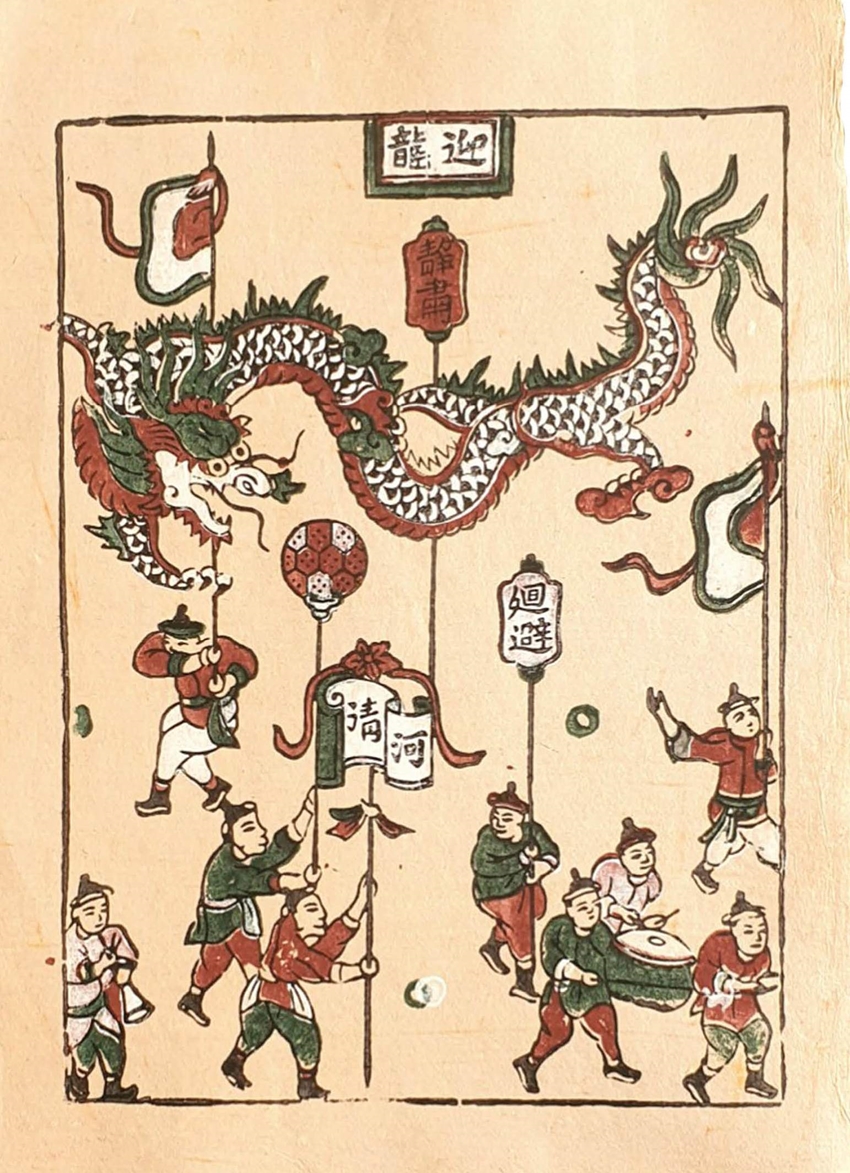 迎龍
靜肅
廻避
清河